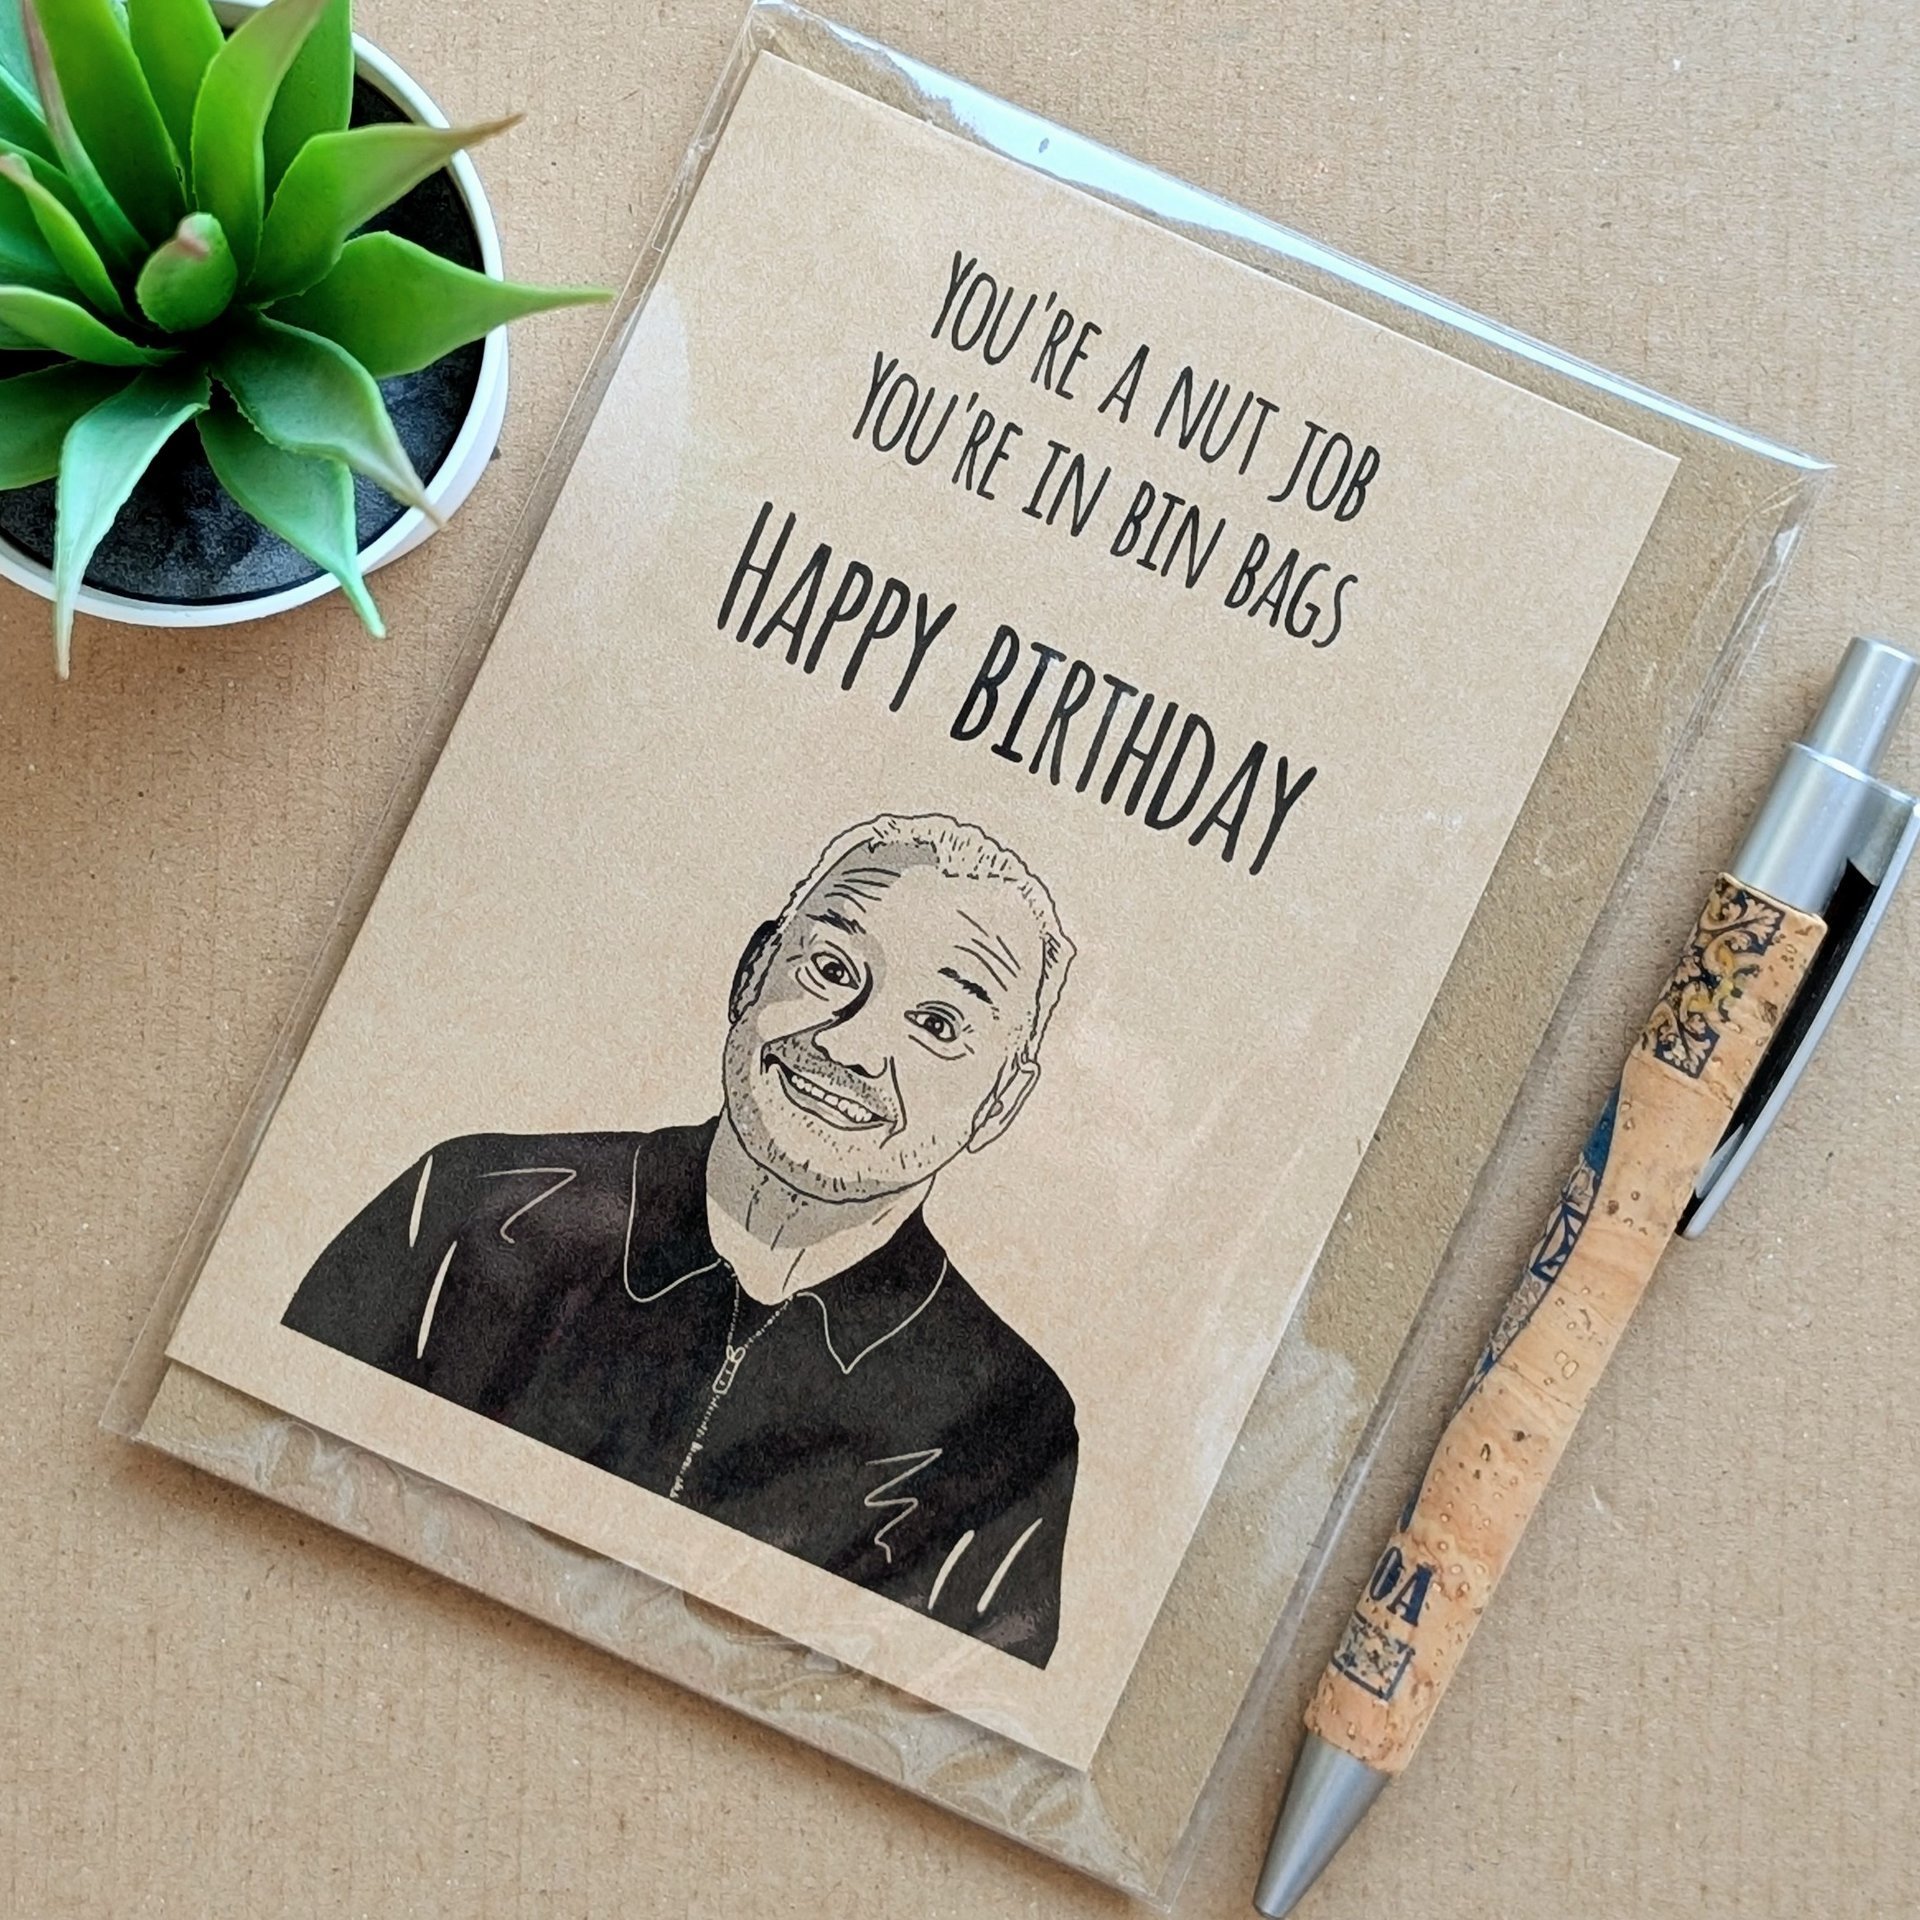 YOU'RE A NUT JOB
YOU'RE IN BIN BAGS
HAPPY BIRTHDAY